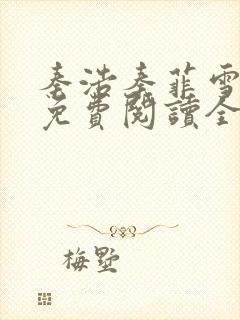 秦浩秦菲雪
免費閱讀全
梅墅